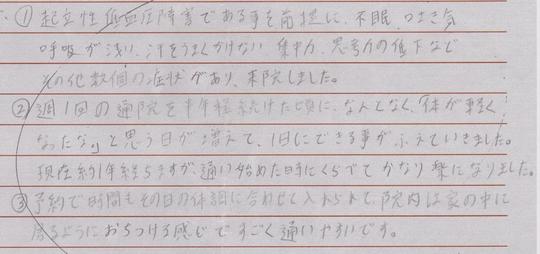 ① 起立性低血圧障害である事を前提に、不眠、つまき気
呼吸が浅い、汗をうまくかけない 集中力、思考力の低下など
その他数個の症状があり、来院しました。
② 週1回の通院を半年程続けた頃に、なんとなく、「体が軽く
なったな」と思う日が増えて、1日にできる事がふえていきました。
現在約1年経ちますが、通い始めた時にくらべて かなり楽になりました。
③ 予約で時間もその日の体調に合わせて入れられて、院内は家の中に
居るようにおちつける感じですごく通いやすいです。